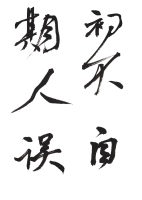 初不自
期人误